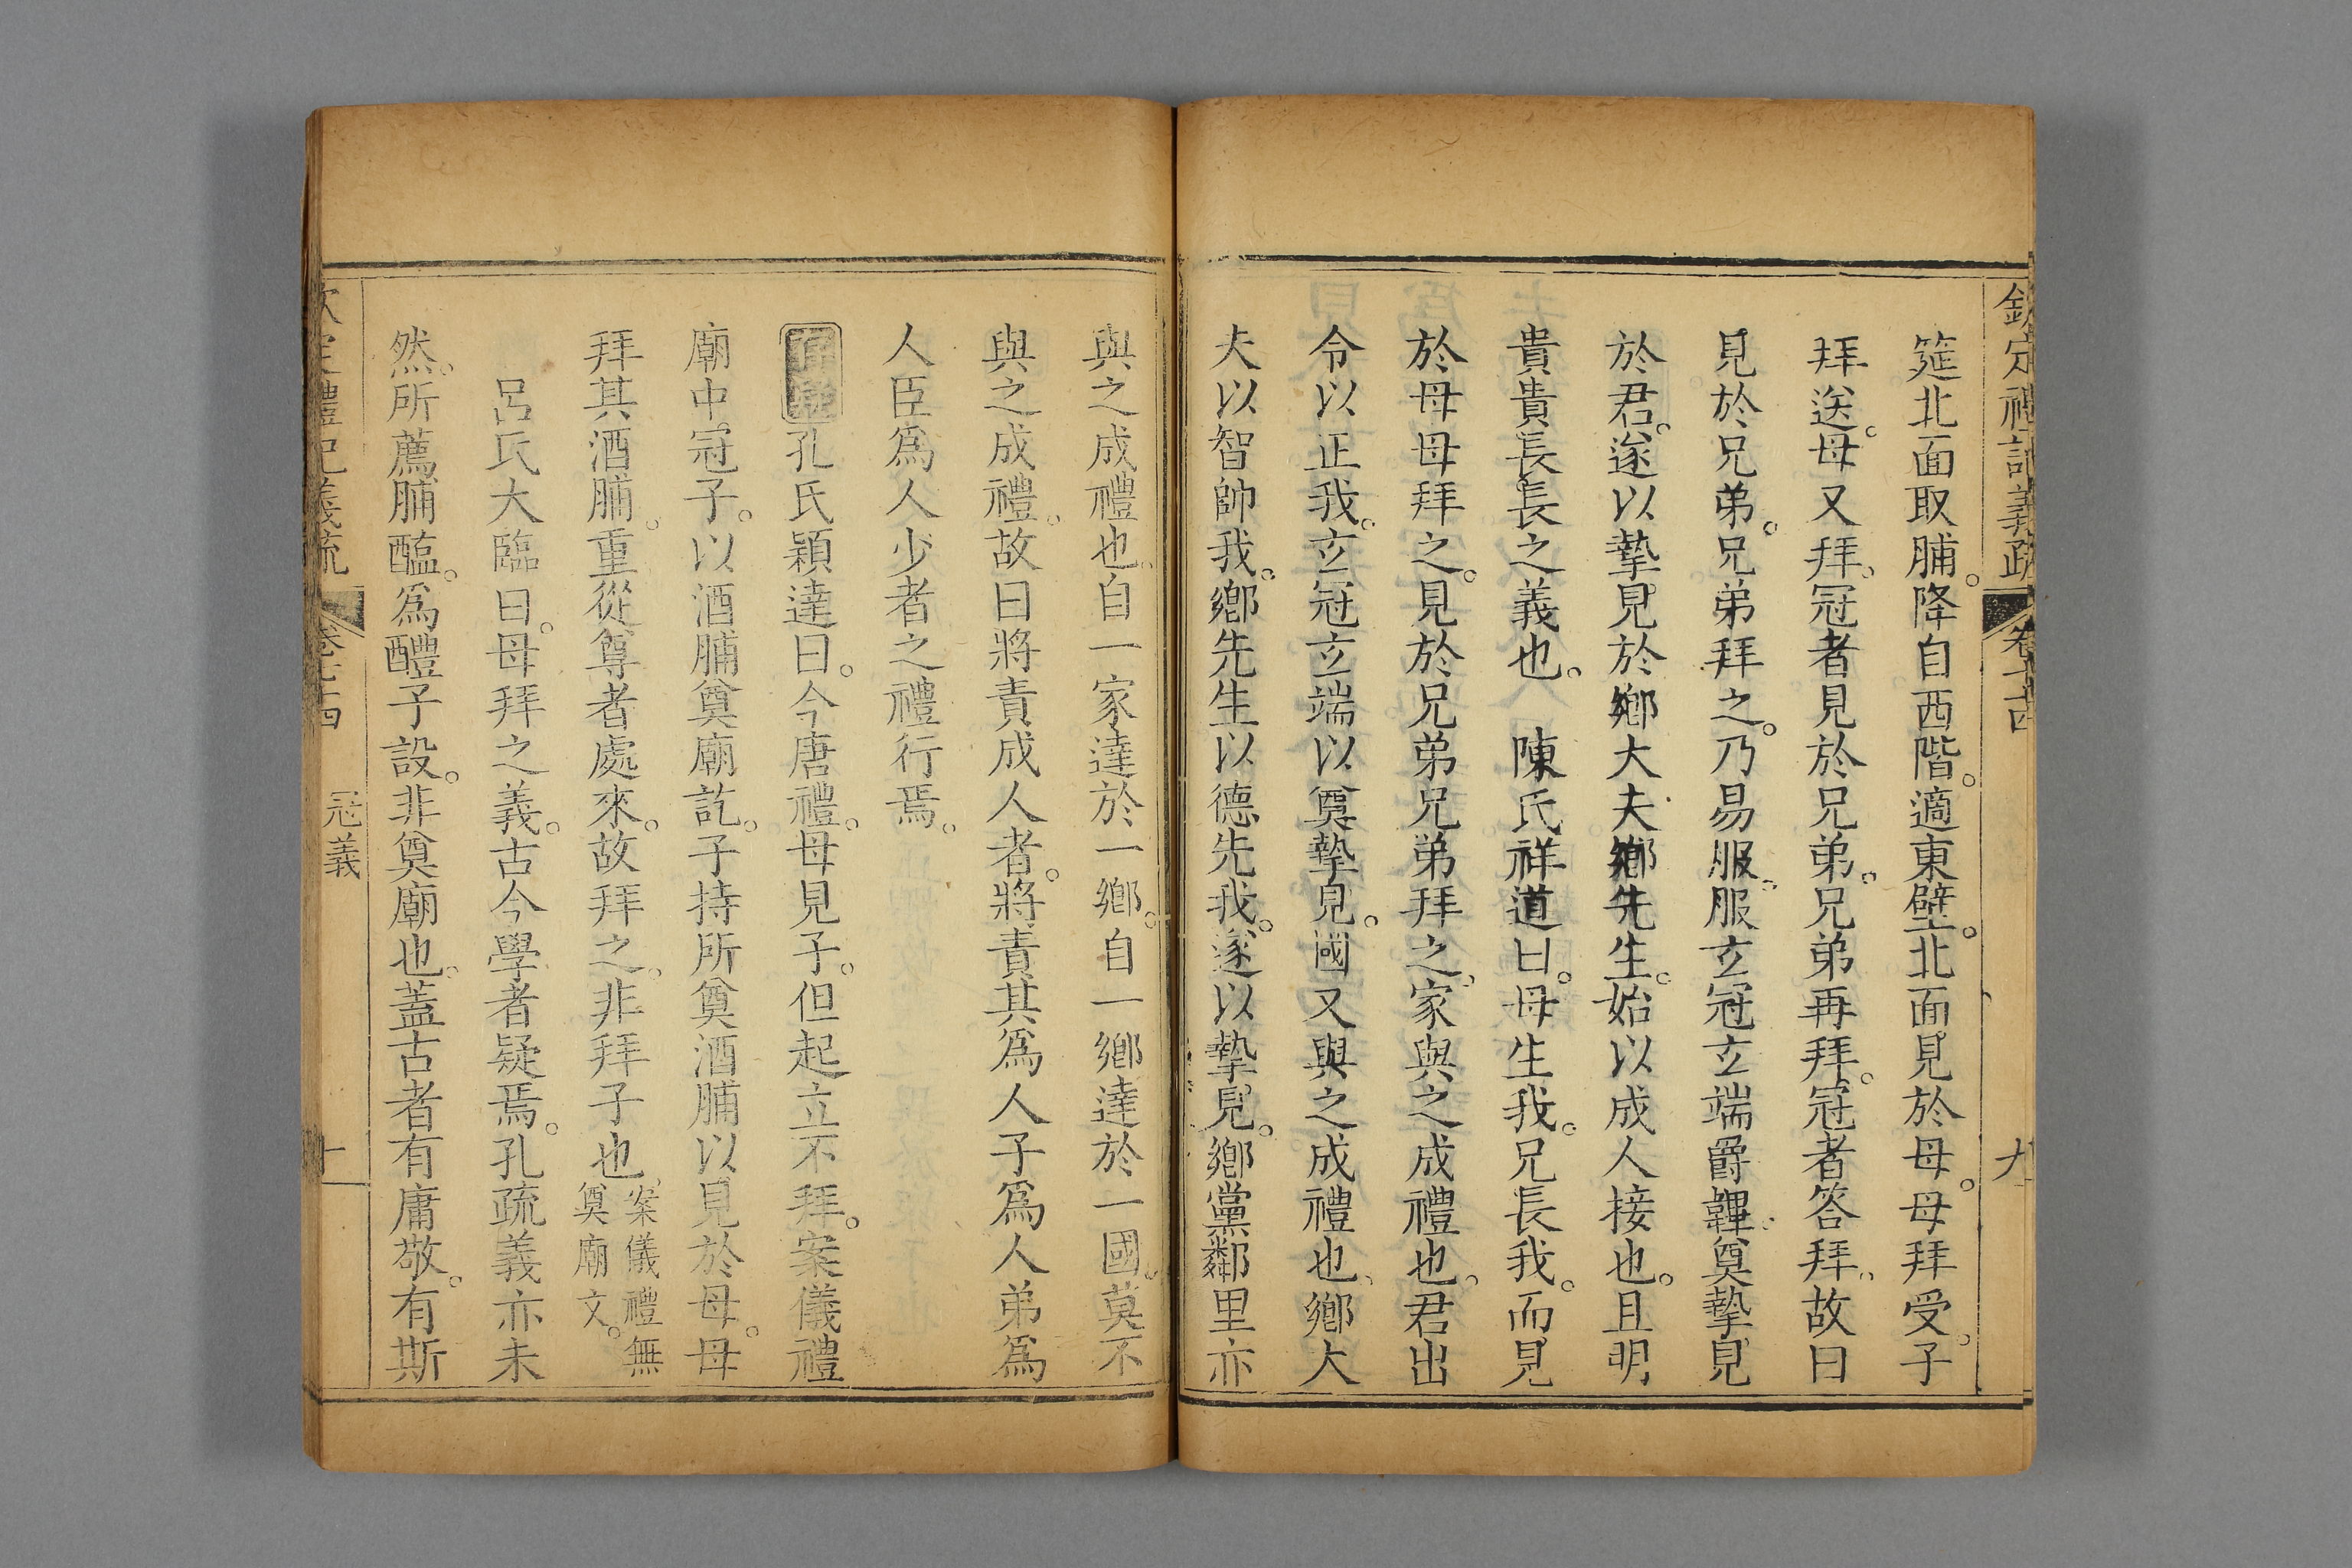 欽定禮記義疏 卷七十四 九
筵北面取脯。降自西階。適東壁。北面見於母。母拜受。子
拜送。母又拜。冠者見於兄弟。兄弟再拜。冠者答拜。故曰
見於兄弟。兄弟拜之。乃易服。服玄冠玄端爵韠。奠摯見
於君。遂以摯見於鄉大夫鄉先生。始以成人接也。且明
貴貴長長之義也。 陳氏祥道曰。母生我。兄長我。而見
於母母拜之。見於兄弟兄弟拜之。家與之成禮也。君出
令以正我。玄冠玄端以奠摯見。國又與之成禮也。鄉大
夫以智帥我。鄉先生以德先我。遂以摯見。鄉黨鄰里亦
與之成禮也。自一家達於一鄉。自一鄉達於一國。莫不
與之成禮。故曰將責成人者。將責其爲人子爲人弟爲
人臣爲人少者之禮行焉。
孔氏穎達曰。今唐禮。母見子。但起立不拜。案儀禮
廟中冠子。以酒脯奠廟訖。子持所奠酒脯以見於母。母
拜其酒脯。重從尊者處來。故拜之。非拜子也。案儀禮無奠廟文。
呂氏大臨曰。母拜之義。古今學者疑焉。孔疏義亦未
然。所薦脯醢。爲醴子設。非奠廟也。蓋古者有庸敬。有斯
欽定禮記義疏 卷七十四 冠義 十